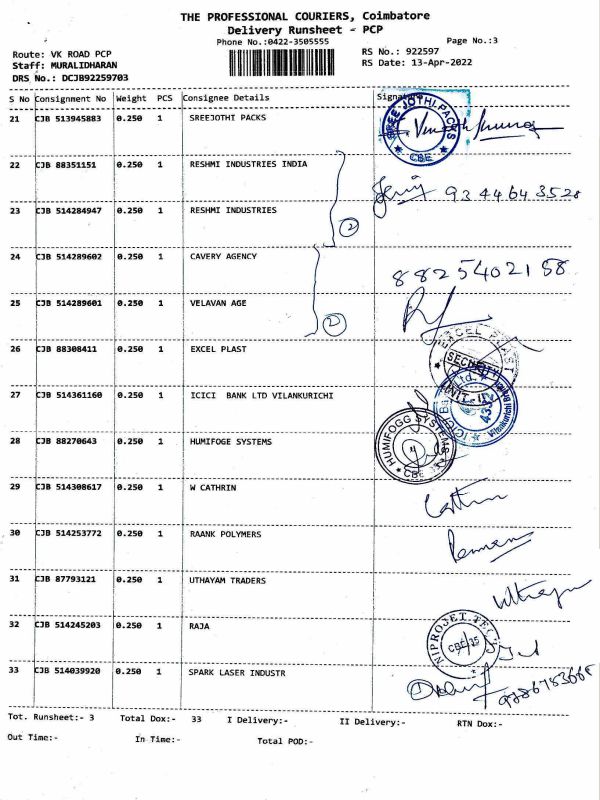 THE PROFESSIONAL COURIERS, Coimbatore
Delivery Runsheet - PCP
Phone No.:0422-3505555 Page No.:3
Route: VK ROAD PCP RS No.: 922597
Staff: MURALIDHARAN RS Date: 13-Apr-2022
DRS No.: DCJB92259703
S No Consignment No Weight PCS Consignee Details Signature
21 CJB 513945883 0.250 1 SREEJOTHI PACKS
SREE JOTHI PACKS
CBE
22 CJB 88351151 0.250 1 RESHMI INDUSTRIES INDIA
9344643528
23 CJB 514284947 0.250 1 RESHMI INDUSTRIES
2
24 CJB 514289602 0.250 1 CAVERY AGENCY
8825402158
25 CJB 514289601 0.250 1 VELAVAN AGE
2
26 CJB 88308411 0.250 1 EXCEL PLAST
EXCEL PLAST
SECURITY
UNIT-II
27 CJB 514361160 0.250 1 ICICI BANK LTD VILANKURICHI
ICICI Bank Ltd.
Vilankurichi
28 CJB 88270643 0.250 1 HUMIFOGE SYSTEMS
HUMIFOGG SYSTEMS
CBE
29 CJB 514308617 0.250 1 W CATHRIN
30 CJB 514253772 0.250 1 RAANK POLYMERS
31 CJB 87793121 0.250 1 UTHAYAM TRADERS
32 CJB 514245203 0.250 1 RAJA
CBE-35
33 CJB 514039920 0.250 1 SPARK LASER INDUSTR
Tot. Runsheet:- 3 Total Dox:- 33 I Delivery:- II Delivery:- RTN Dox:-
Out Time:- In Time:- Total POD:-